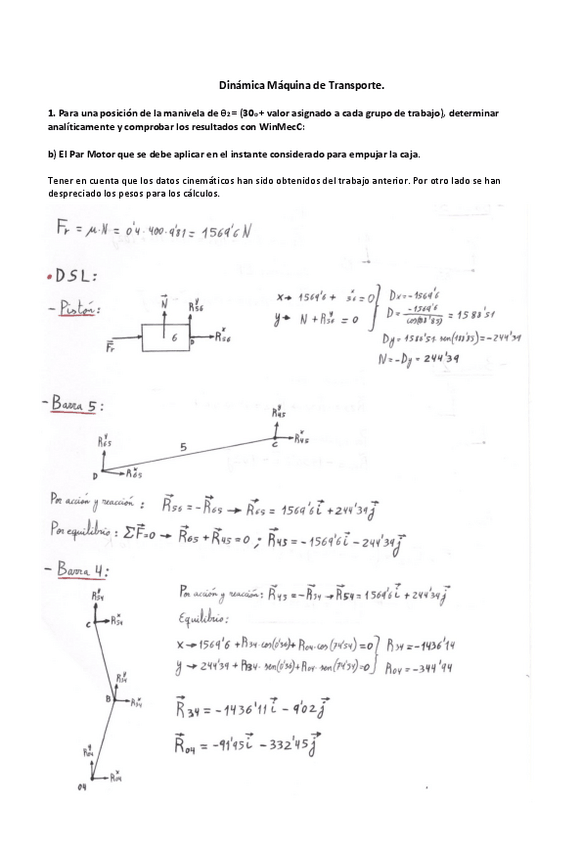 Dinámica Máquina de Transporte.
1. Para una posición de la manivela de θ2= (30º+ valor asignado a cada grupo de trabajo), determinar
analíticamente y comprobar los resultados con WinMecC:
b) El Par Motor que se debe aplicar en el instante considerado para empujar la caja.
Tener en cuenta que los datos cinemáticos han sido obtenidos del trabajo anterior. Por otro lado se han
despreciado los pesos para los cálculos.
Fr = μ·N = 0'4 · 400 · 9'81 = 1569'6 N
• DSL:
- Pistón:
N R56^y
6
Fr D R56^x
x→ 1569'6 + R56^x = 0
y→ N + R56^y = 0
Dx = -1569'6
D = -1569'6 / cos(188'85) = 1588'51
Dy = 1588'51 · sen(188'85) = -244'39
N = -Dy = 244'39
- Barra 5:
R45^y
C R45^x
5
R65^y
D R65^x
Por acción y reacción: R56 = -R65 → R65 = 1569'6 i + 244'39 j
Por equilibrio: ΣF=0 → R65 + R45 = 0 ; R45 = -1569'6 i - 244'39 j
- Barra 4:
R54^y
C R54^x
R34^y
B R34^x
R04^y
R04^x
04
Por acción y reacción: R45 = -R54 → R54 = 1569'6 i + 244'39 j
Equilibrio:
x→ 1569'6 + R34·cos(0'36) + R04·cos(74'54) = 0
y→ 244'39 + R34·sen(0'36) + R04·sen(74'54) = 0
R34 = -1436'14
R04 = -344'94
R34 = -1436'11 i - 9'02 j
R04 = -91'95 i - 332'45 j